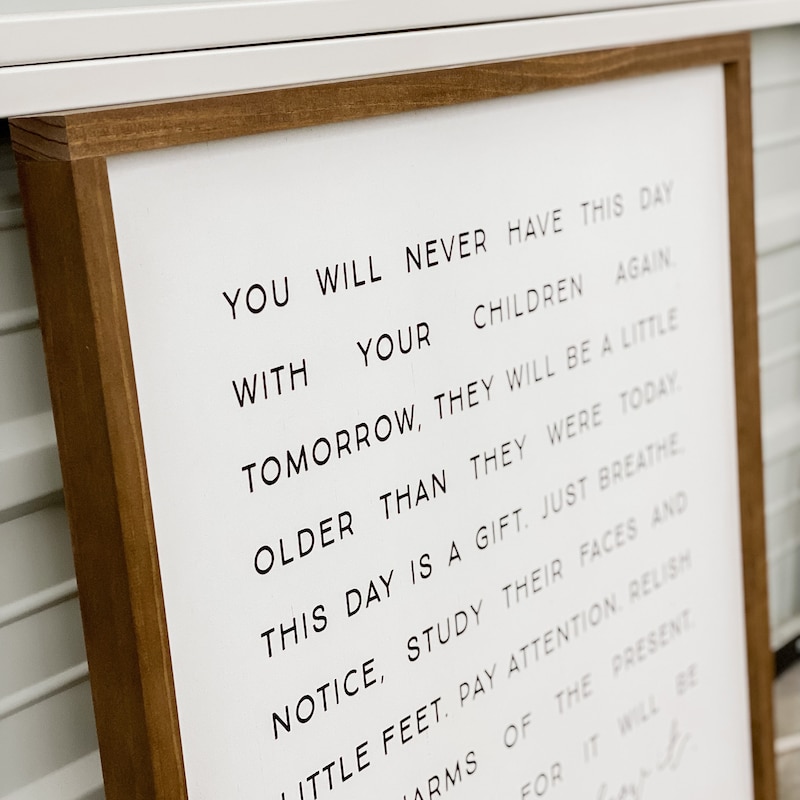 YOU WILL NEVER HAVE THIS DAY
WITH YOUR CHILDREN AGAIN.
TOMORROW, THEY WILL BE A LITTLE
OLDER THAN THEY WERE TODAY.
THIS DAY IS A GIFT. JUST BREATHE.
NOTICE, STUDY THEIR FACES AND
LITTLE FEET. PAY ATTENTION. RELISH
OF THE PRESENT.
FOR IT WILL BE
it.